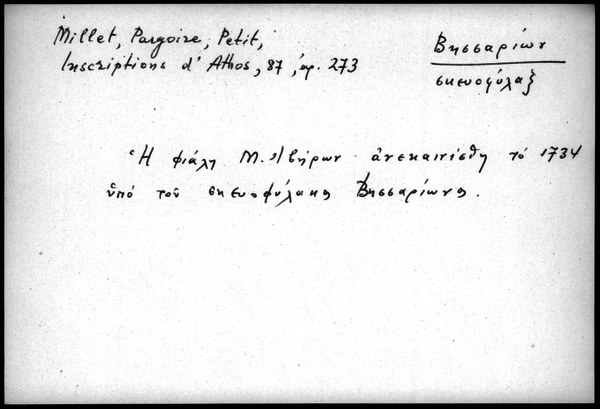 Millet, Pargoire, Petit,
Inscriptions d'Athos, 87, ἀρ. 273
Βησσαρίων
σκευοφύλαξ
Ἡ φιάλη Μ. Ἰβήρων ἀνεκαινίσθη τό 1734
ὑπό τοῦ σκευοφύλακος Βησσαρίωνος.